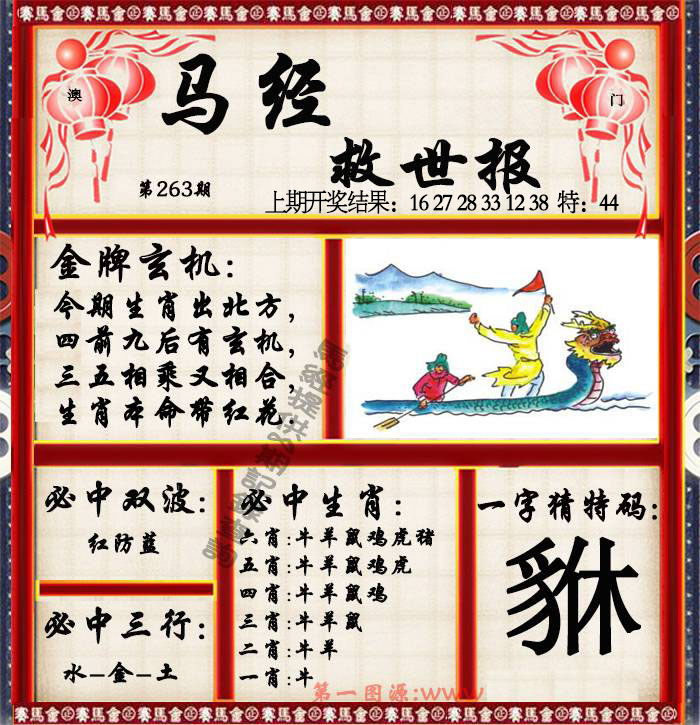 賽馬會 賽馬會 賽馬會 賽馬會 賽馬會 賽馬會 賽馬會 賽馬會
澳 门
马经
救世报
第263期
上期开奖结果：16 27 28 33 12 38 特：44
金牌玄机：
今期生肖出北方，
四前九后有玄机，
三五相乘又相合，
生肖本命带红花.
必中双波：
红防蓝
必中三行：
水-金-土
必中生肖：
六肖:牛羊鼠鸡虎猪
五肖:牛羊鼠鸡虎
四肖:牛羊鼠鸡
三肖:牛羊鼠
二肖:牛羊
一肖:牛
一字猜特码：
貅
第一图源:www